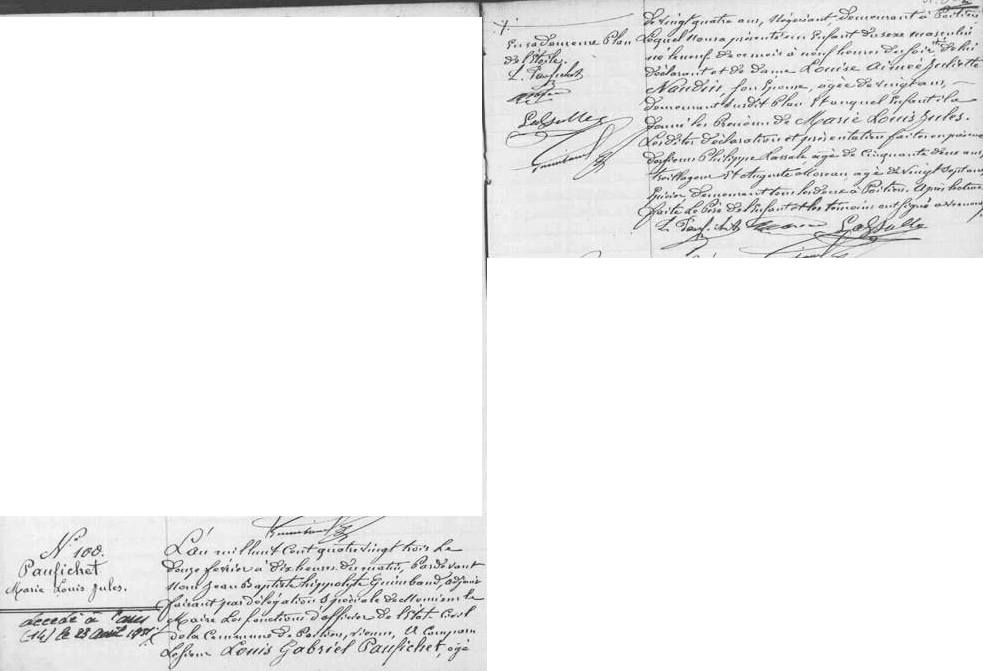 N° 100.
Paufichet
Marie Louis Jules.
décédé à Paris
(14) le 23 avril
L'an mil huit cent quatre vingt trois le
douze février à dix heures du matin, Pardevant
Nous Jean Baptiste hippolyte Guimbaud, adjoint
faisant par délégation spéciale de Monsieur le
Maire les fonctions d'officier de l'Etat Civil
de la Commune de Poitiers, vienne, A Comparu
Le sieur Louis Gabriel Paufichet, âgé
de vingt quatre ans, Négociant, demeurant à Poitiers
Lequel Nous a présenté un Enfant du sexe masculin
né le neuf de ce mois à neuf heures du soir de lui
déclarant et de dame Louise Aimée Juliette
Naudin, son Epouse, âgée de vingt ans,
demeurant susdit Plan Et auquel Enfant il a
donné les Prénoms de Marie Louis Jules.
Lesdites déclaration et présentation faites en présence
des sieurs Philippe Lassale âgé de Cinquante deux ans,
Et Auguste Moreau âgé de vingt sept ans,
Epicier demeurant tous les deux à Poitiers. Après lecture
faite Le Père de l'Enfant et les témoins ont signé avec nous
L. Paufichet Lassalle
En sa demeure Plan
de l'étoile.
L. Paufichet
Lassalle